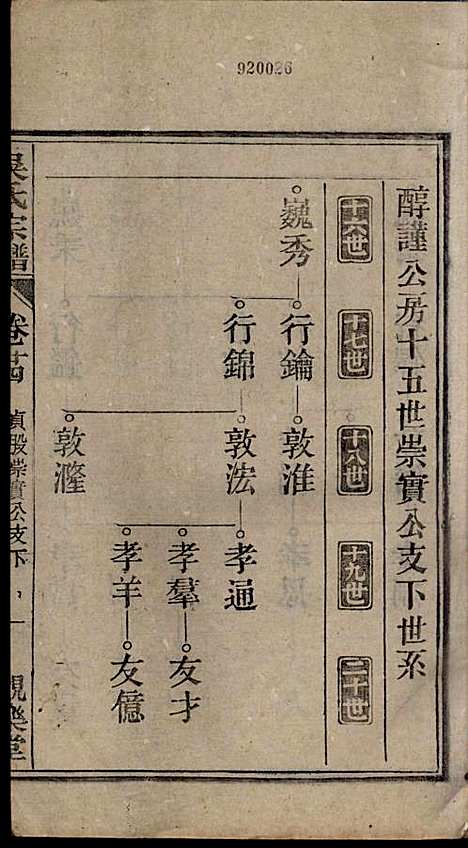 920026
醇謹公房十五世崇實公支下世系
十六世 十七世 十八世 十九世 二十世
巍秀 行鑰 敦淮
行錦 敦浤 孝通
孝羣 友才
孝羊 友億
敦漋
吳氏宗譜 卷廿四 貞股崇實公支下 一 親樂堂